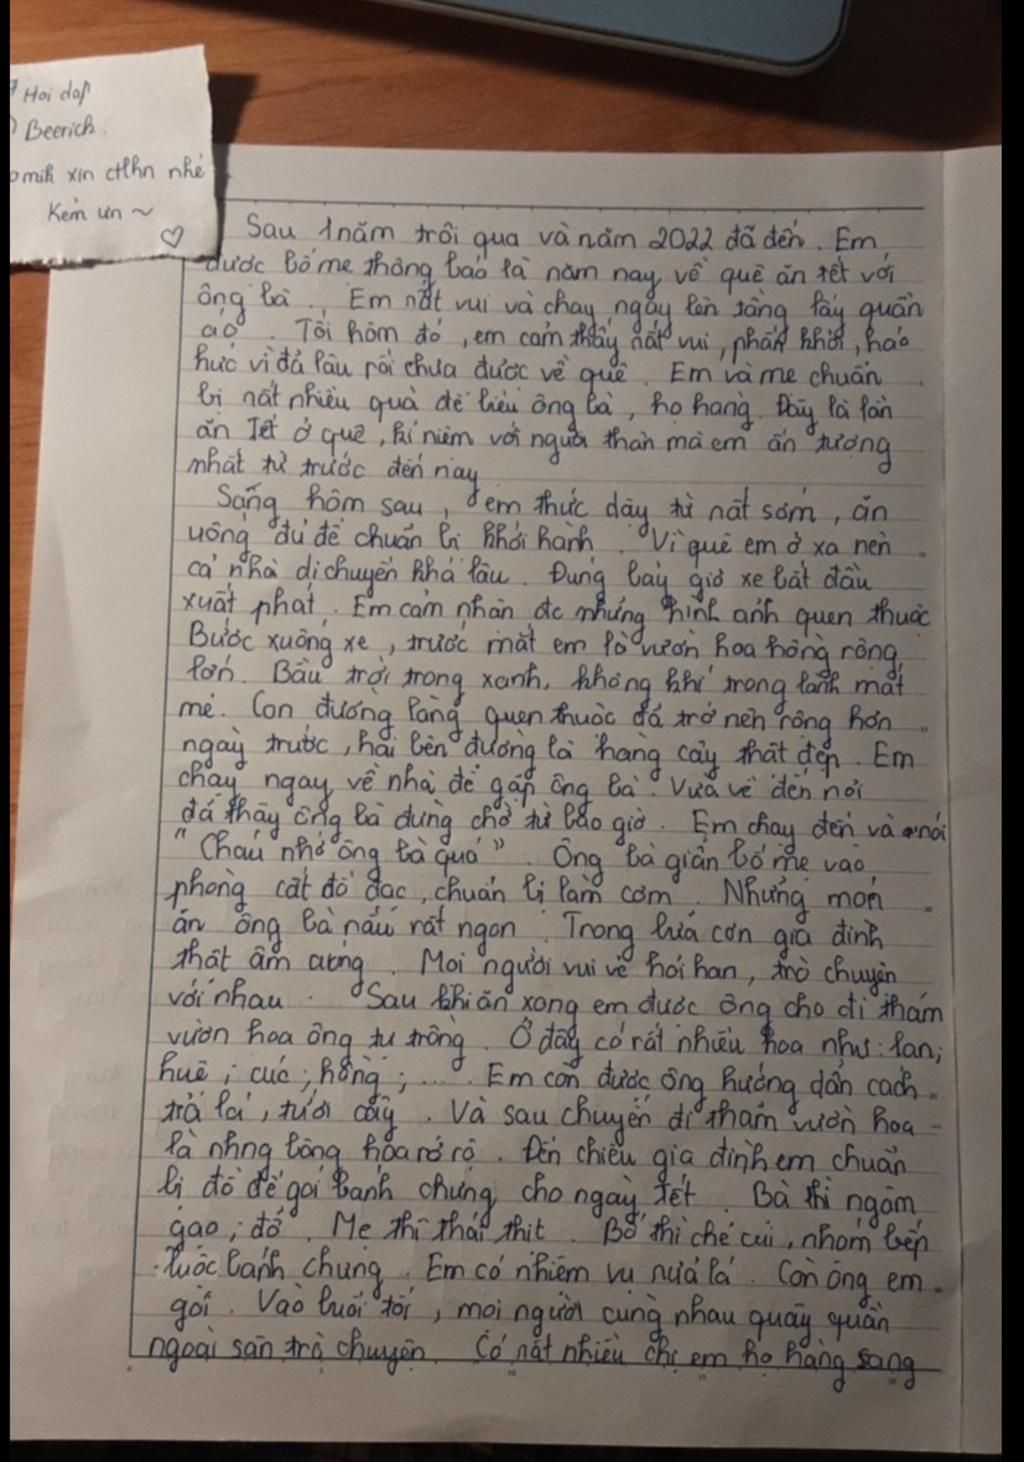 Hoi dap
Beerich.
mih xin ctlhn nhé
Kem ưn ~
Sau 1 năm trôi qua và năm 2022 đã đến. Em
được bố mẹ thông báo là năm nay về quê ăn tết với
ông bà. Em nất vui và chạy ngay lên tầng lấy quần
áo. Tối hôm đó, em cảm thấy nất vui, phấn khởi, háo
hức vì đã lâu rồi chưa được về quê. Em và mẹ chuẩn
bị nất nhiều quà để biếu ông bà, họ hàng. Đây là lần
ăn Tết ở quê, kỉ niệm với người thân mà em ấn tượng
nhất từ trước đến nay
Sáng hôm sau, em thức dậy từ nất sớm, ăn
uống đủ để chuẩn bị khởi hành. Vì quê em ở xa nên
cả nhà di chuyển khá lâu. Đúng bảy giờ xe bắt đầu
xuất phát. Em cảm nhận đc những hình ảnh quen thuộc
Bước xuống xe, trước mắt em là vườn hoa hồng rộng
lớn. Bầu trời trong xanh, không khí trong lành mát
mẻ. Con đường làng quen thuộc đã trở nên rộng hơn
ngày trước, hai bên đường là hàng cây thật đẹp. Em
chạy ngay về nhà để gặp ông bà. Vừa về đến nơi
đã thấy ông bà đứng chờ từ bao giờ. Em chạy đến và nói
"Cháu nhớ ông bà quá". Ông bà giần bố mẹ vào
phòng cất đồ đạc, chuẩn bị làm cơm. Những món
ăn ông bà nấu rất ngon. Trong bữa cơn gia đình
thật ấm cúng. Mọi người vui vẻ hỏi han, trò chuyện
với nhau. Sau khi ăn xong em được ông cho đi thăm
vườn hoa ông tự trồng. Ở đây có rất nhiều hoa như: lan;
huệ; cúc; hồng; .... Em còn được ông hướng dẫn cách
trả lá, tưới cây. Và sau chuyến đi thăm vườn hoa
là nhng bông hoa rớ rộ. Đến chiều gia đình em chuẩn
bị đồ để gói bánh chưng cho ngày tết. Bà thì ngâm
gạo; đỗ. Mẹ thì thái thịt. Bố thì chẻ củi, nhóm bếp
luộc bánh chưng. Em có nhiệm vụ nửa lá. Còn ông em
gói. Vào buổi tối, mọi người cùng nhau quây quần
ngoài sân trò chuyện. Có nất nhiều chị em họ hàng sang